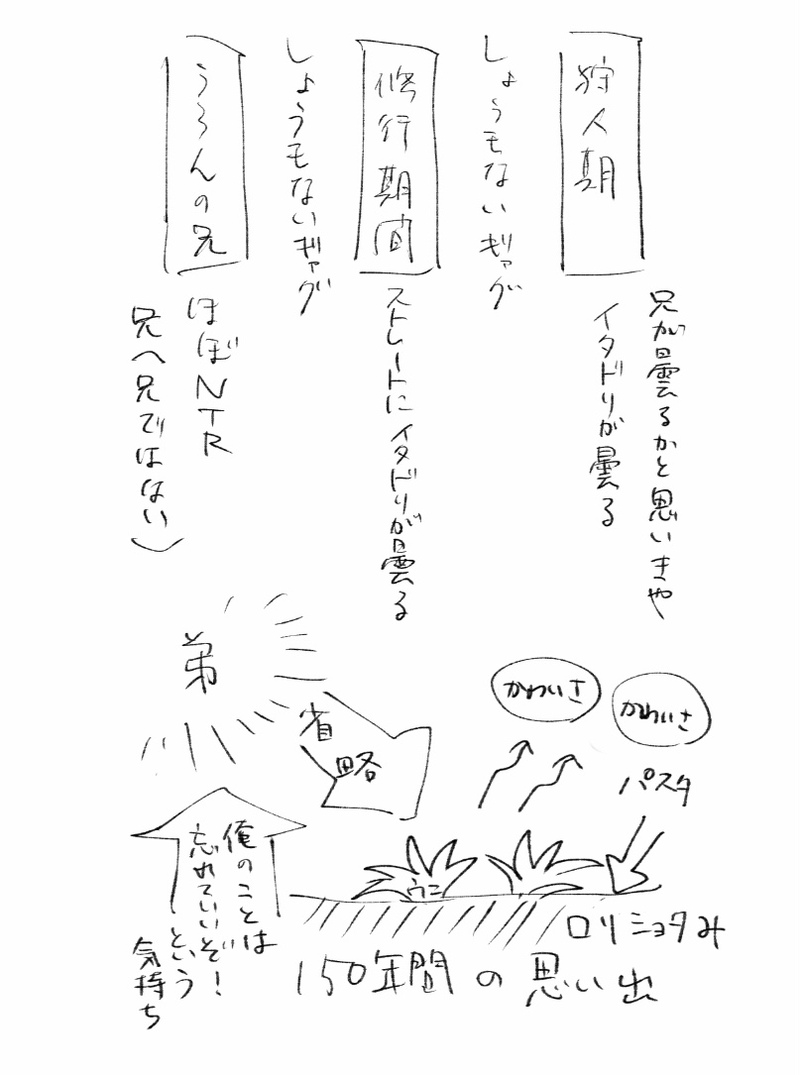 狩人期
兄が曇るかと思いきや
イタドリが曇る
しょうもないギャグ
修行期間
ストレートにイタドリが曇る
しょうもないギャグ
うろんの兄
ほぼNTR
兄へ兄ではない)
弟
省略
かわいさ
かわいさ
パスタ
ウニ
ロリショタみ
俺のことは
忘れていいぞ!
という
気持ち
150年間の思い出